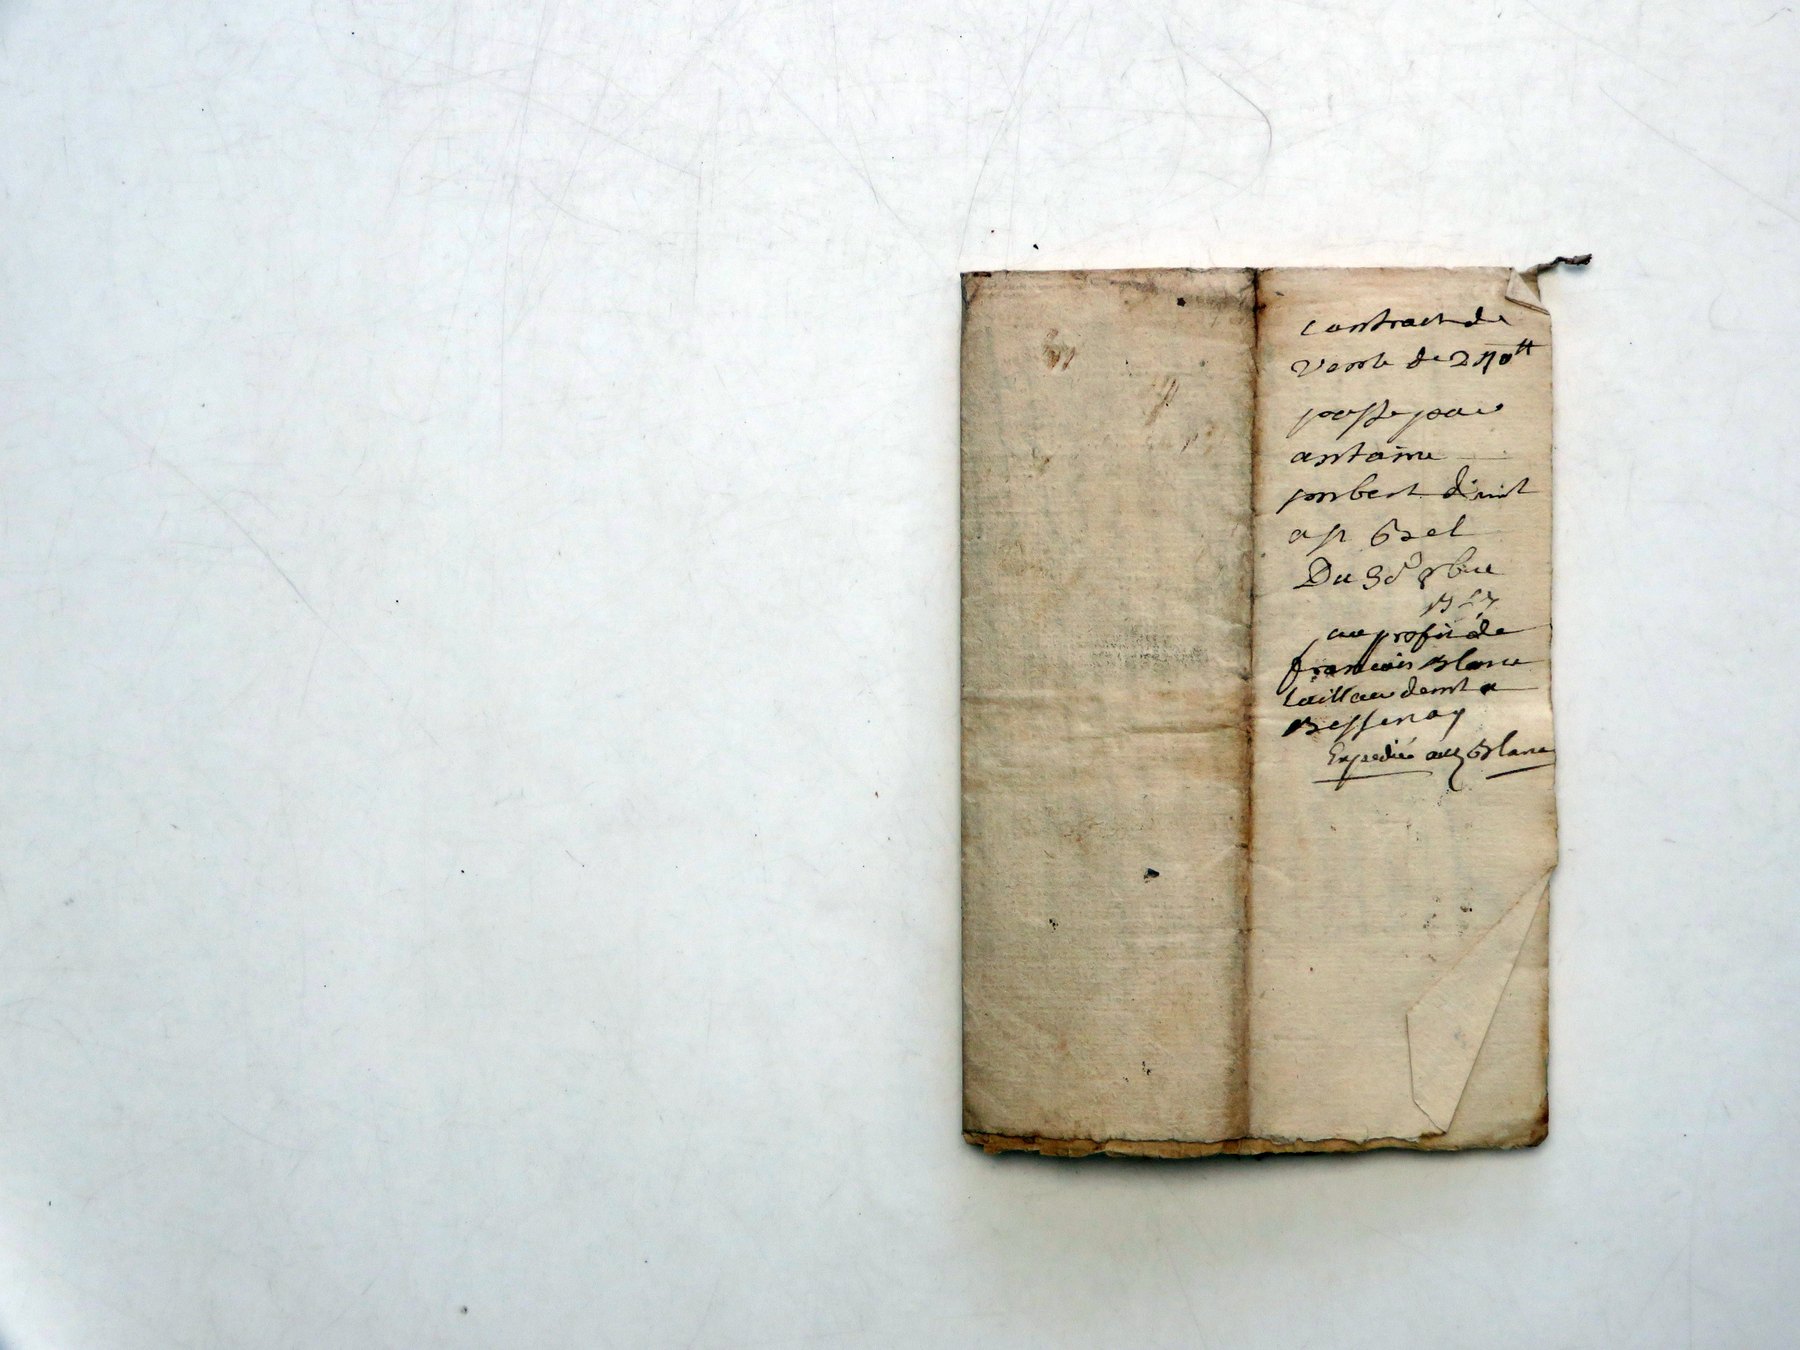 contract de
vente de 270ᵗᵗ
passe par
antoine
joubert dmt
a st Bel
Du 3e 9bre
au profit de
francois Blanc
tailleur demt a
Bessenay
Expediée aud Blanc